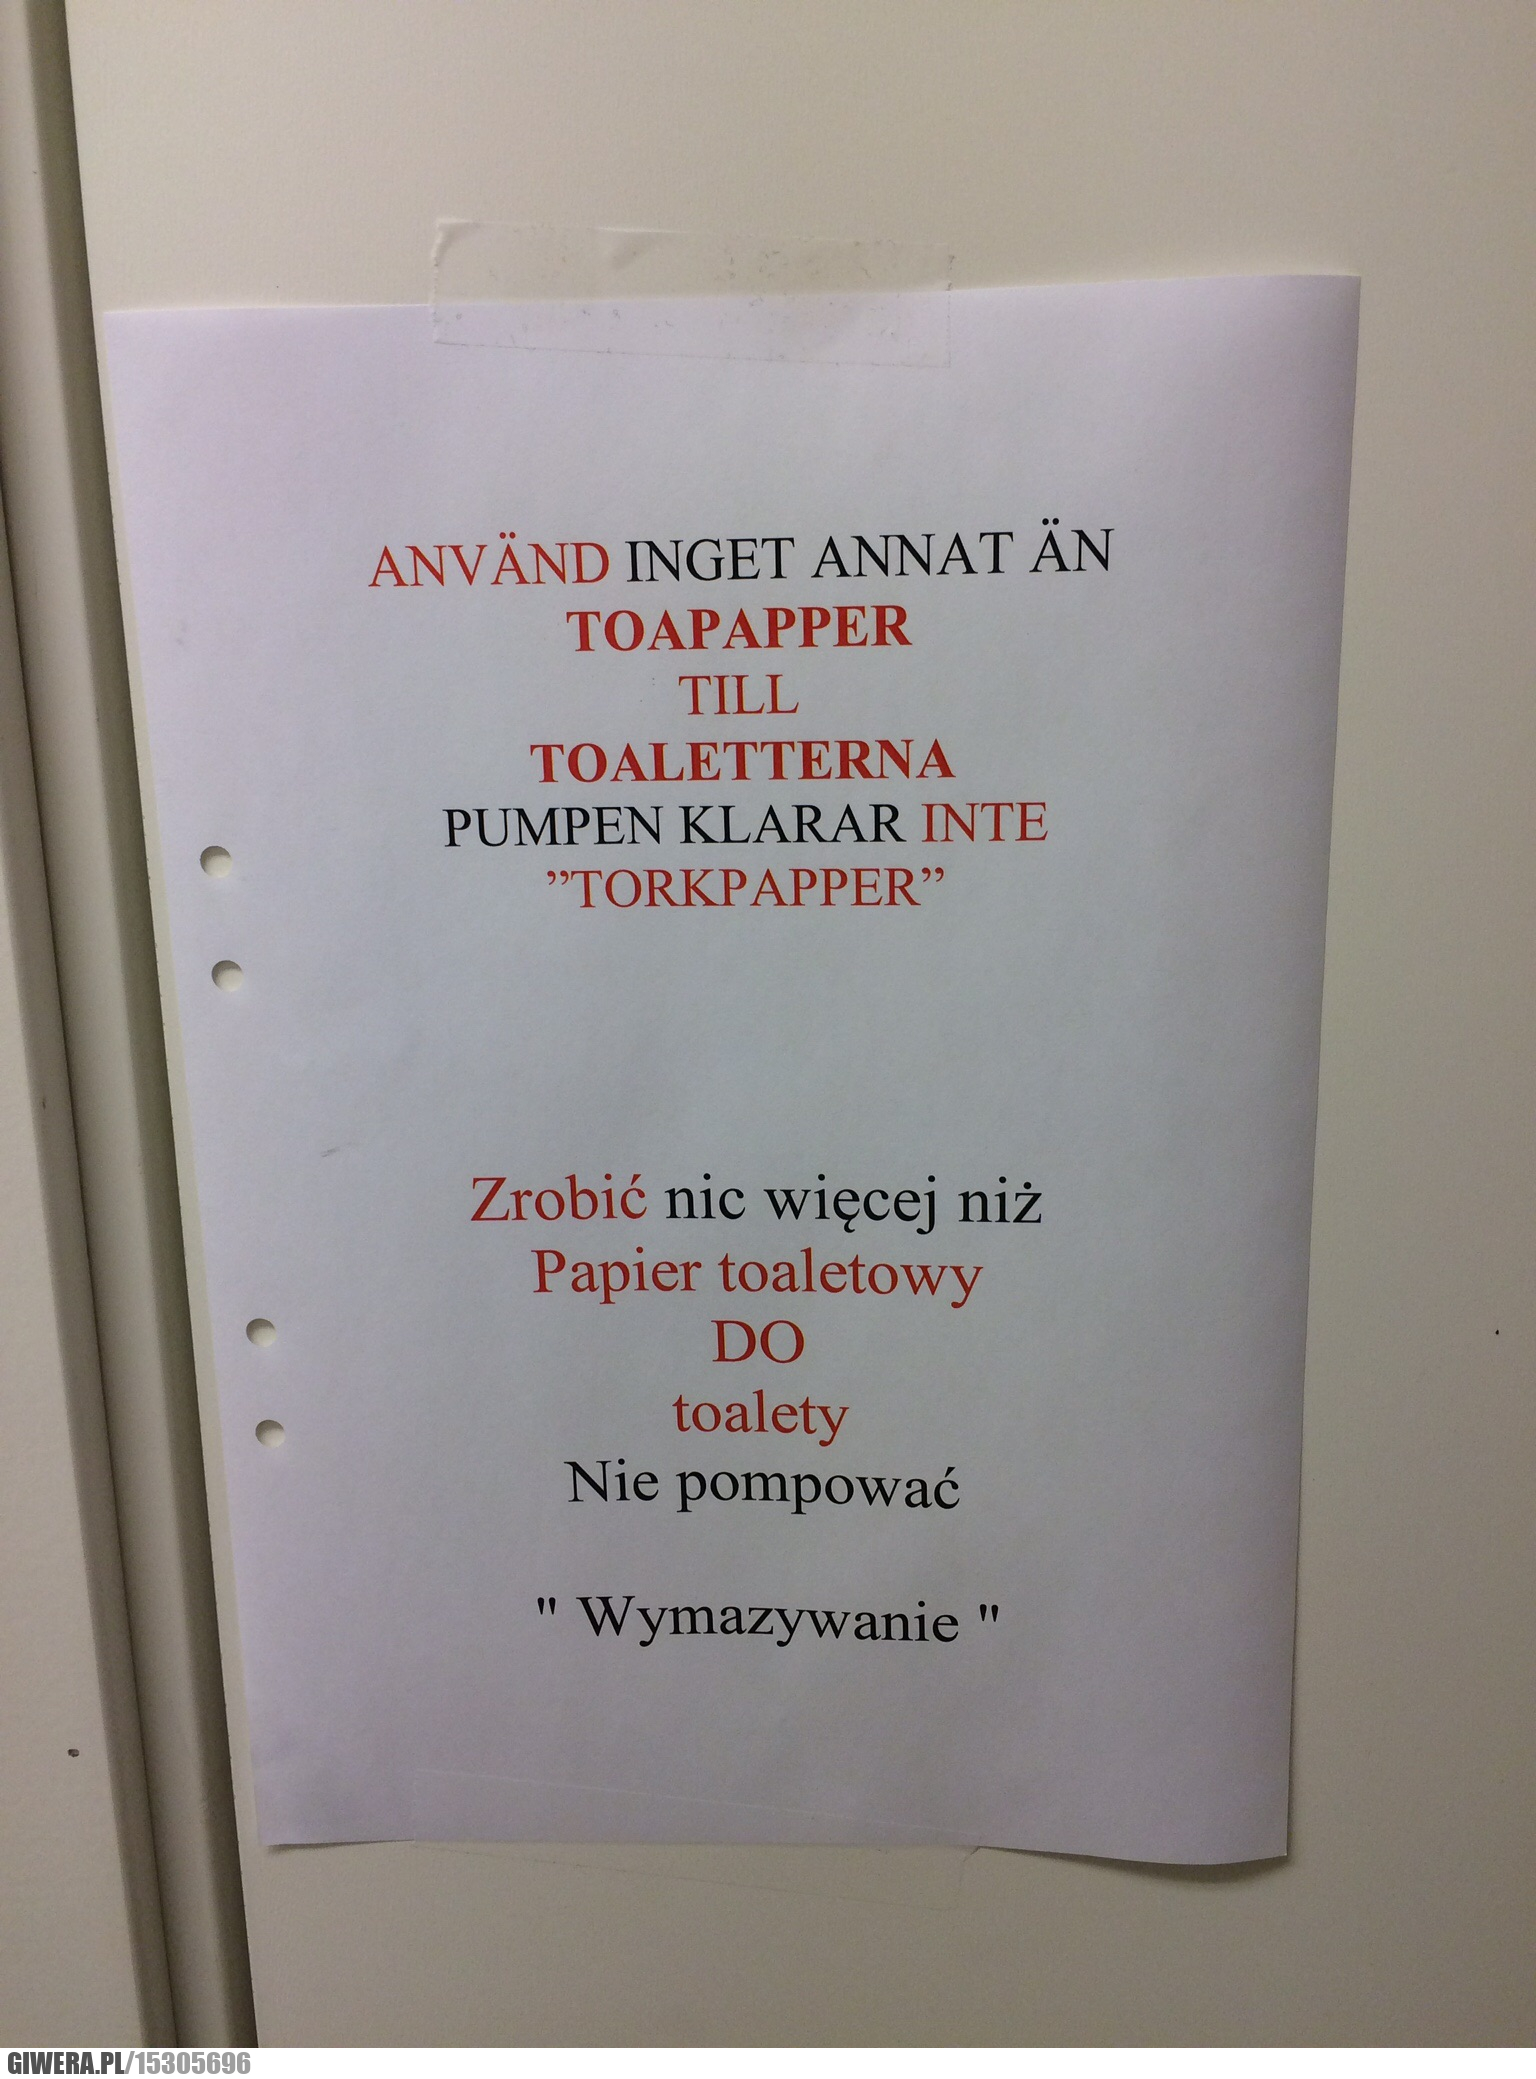 ANVÄND INGET ANNAT ÄN
TOAPAPPER
TILL
TOALETTERNA
PUMPEN KLARAR INTE
”TORKPAPPER”
Zrobić nic więcej niż
Papier toaletowy
DO
toalety
Nie pompować
" Wymazywanie "
GIWERA.PL/15305696